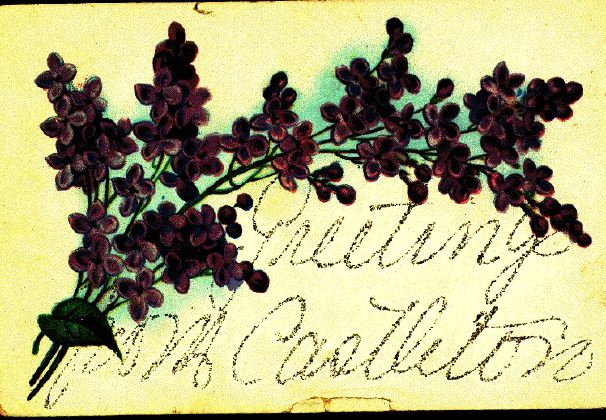 Greeting
from Castleton